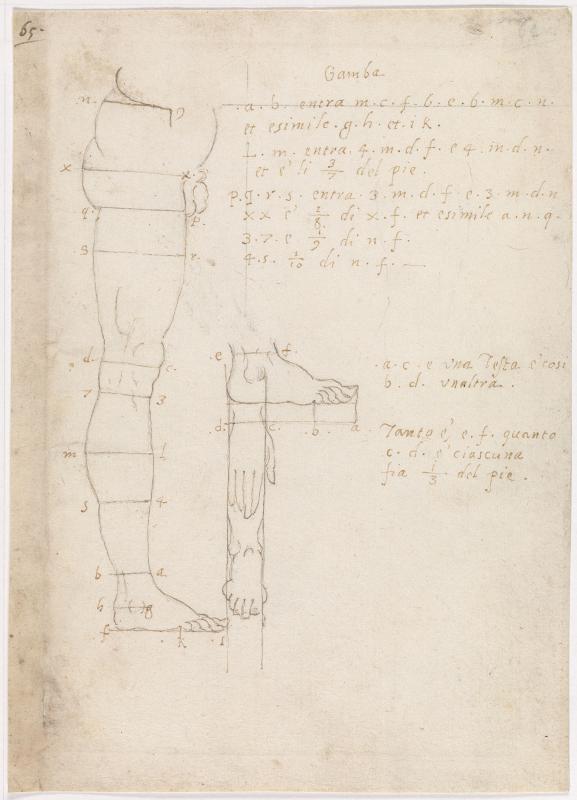 65.
Gamba
.a.b. entra m.c.f.b.e.b.m.c.n.
et esimile.g.h.et.i k.
L. m. entra 4.m.d.f.e 4.in.d.n.
et e' li 3/7 del pie.
p.q.r.s. entra 3.m.d.f.e.3.m.d.n
xx e' 2/8 di x.f. et esimile a.n.q.
3.7 e 1/9 di n.f.
4.s. 1/10 di n.f.
n. 9
x x.
q. p.
s r.
d. c.
7 3
m l
s 4
b a
h g
f k i
.e .f.
.d. c. .b. a
.a.c.e una Testa e' cosi
b.d. unaltra.
Tanto e' e.f. quanto
c.d. e' ciascuna
fia 1/3 del pie.